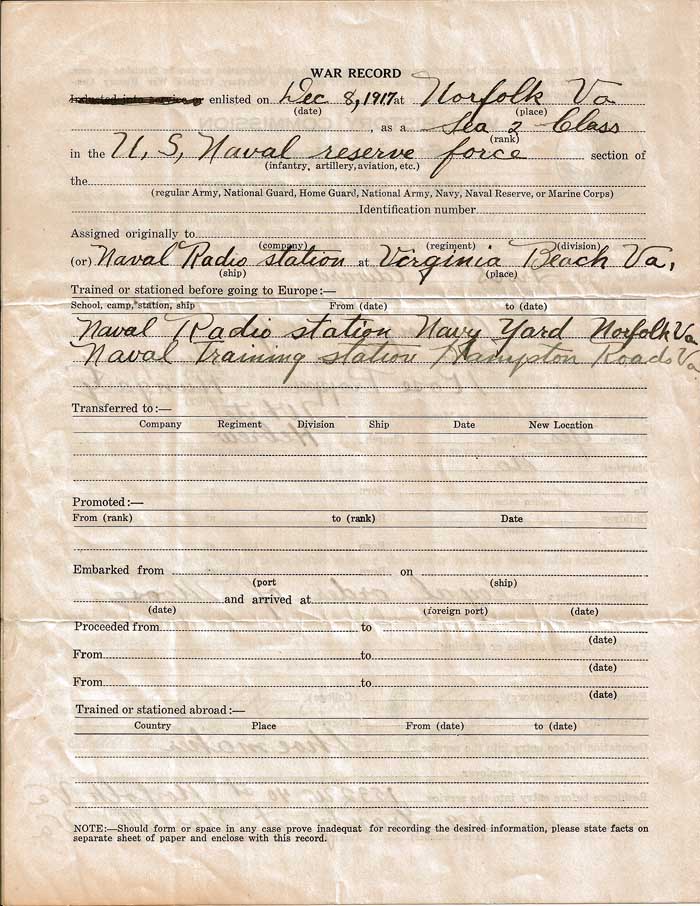 WAR RECORD
Inducted into service or enlisted on Dec 8, 1917 at Norfolk Va
(date) (place)
, as a Sea 2 Class
(rank)
in the U, S, Naval reserve force section of
(infantry, artillery, aviation, etc.)
the
(regular Army, National Guard, Home Guard, National Army, Navy, Naval Reserve, or Marine Corps)
Identification number
Assigned originally to
(company) (regiment) (division)
(or) Naval Radio station at Virginia Beach Va,
(ship) (place)
Trained or stationed before going to Europe:—
School, camp, station, ship From (date) to (date)
Naval Radio station Navy Yard Norfolk Va
Naval Training station Hampton Roads Va
Transferred to:—
Company Regiment Division Ship Date New Location
Promoted:—
From (rank) to (rank) Date
Embarked from on
(port (ship)
and arrived at
(date) (foreign port) (date)
Proceeded from to
(date)
From to
(date)
From to
(date)
Trained or stationed abroad:—
Country Place From (date) to (date)
NOTE:—Should form or space in any case prove inadequat for recording the desired information, please state facts on
separate sheet of paper and enclose with this record.